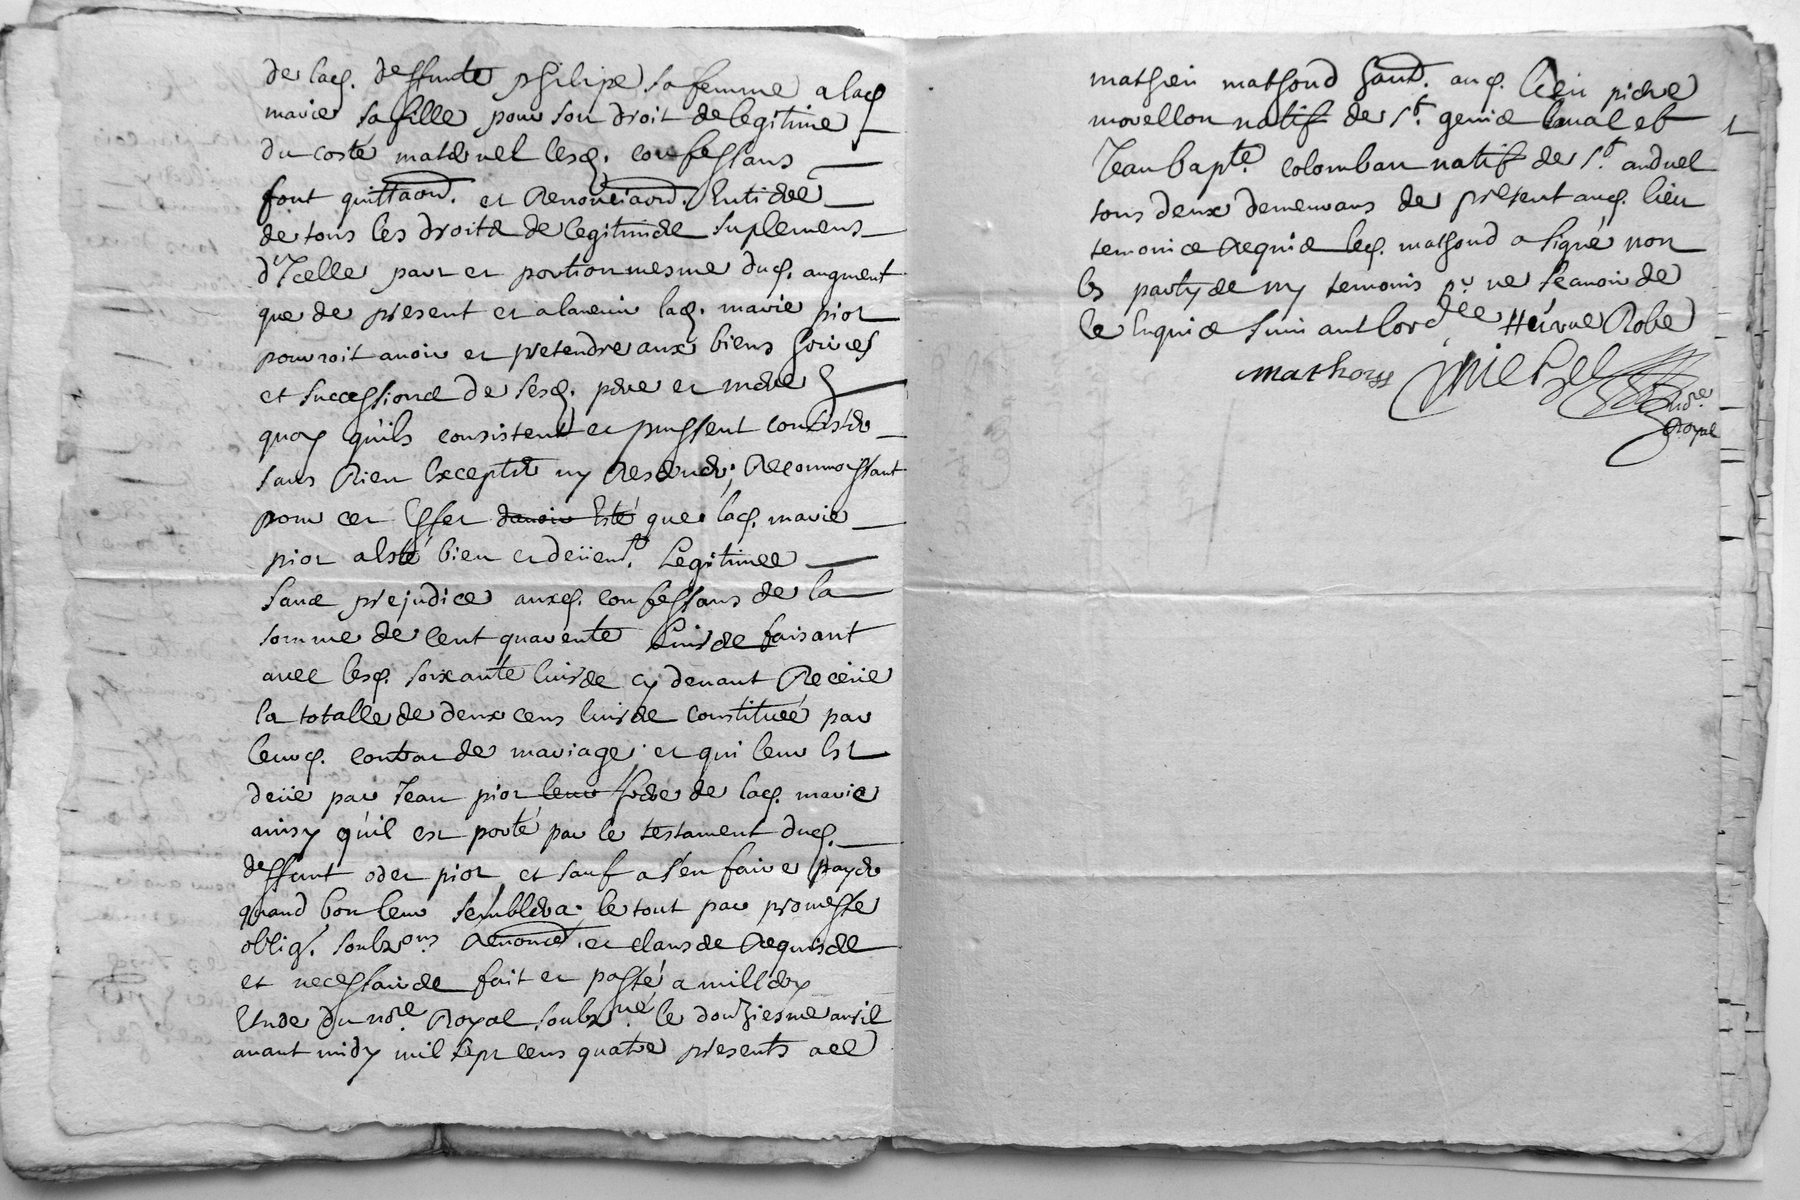 de lad. deffunte philipe sa femme a lad
marie sa fille pour son droit de legitime
du costé maternel lesd. confessans
font quittaon. et renonciaon. entiere
de tous les droits de legitimes suplemens
d'Icelle part et portion mesme dud. augment
que de present et a lauenir lad. marie piot
pourroit auoir et pretendre aux biens hoiries
et successions de sesd. pere et mere
quoy qu'ils consistent et pussent consister
sans Rien Excepter ny Reserver, Reconnoissant
pour cet Effet d'auoir Esté que lad. marie
piot a Esté bien et deüemt. Legitimée
sans prejudice auxd. confessans de la
somme de cent quarente liures faisant
auec lesd. soixante liures cy deuant Receüe
la totalle de deux cens liures constituée par
leurd. contrat de mariage, et qui leur Est
deüe par Jean piot leur frere de lad. marie
ainsy qu'il est porté par le testament dud.
deffunt odet piot, et sauf a s'en faire payer
quand bon leur semblera. le tout par promesse
oblig. soubzons Renonced. et clauses Requises
et necessaires fait et passé a millery
Etude du nore. Royal soubzné. le douziesme auril
avant midy mil sept cens quatre presents a ce
mathieu mathoud hant. aud. lieu pierre
morellon natif de st. genis laual et
Jean bapte. colomban natif de st. anduel
tous deux demeurans de present aud. lieu
temoins Requis led. mathoud a signé non
les partyes ny temoins pr. ne scauoir de
ce Enquis suiuant lordce Heürue Robe
mathoud
nore.
Royal